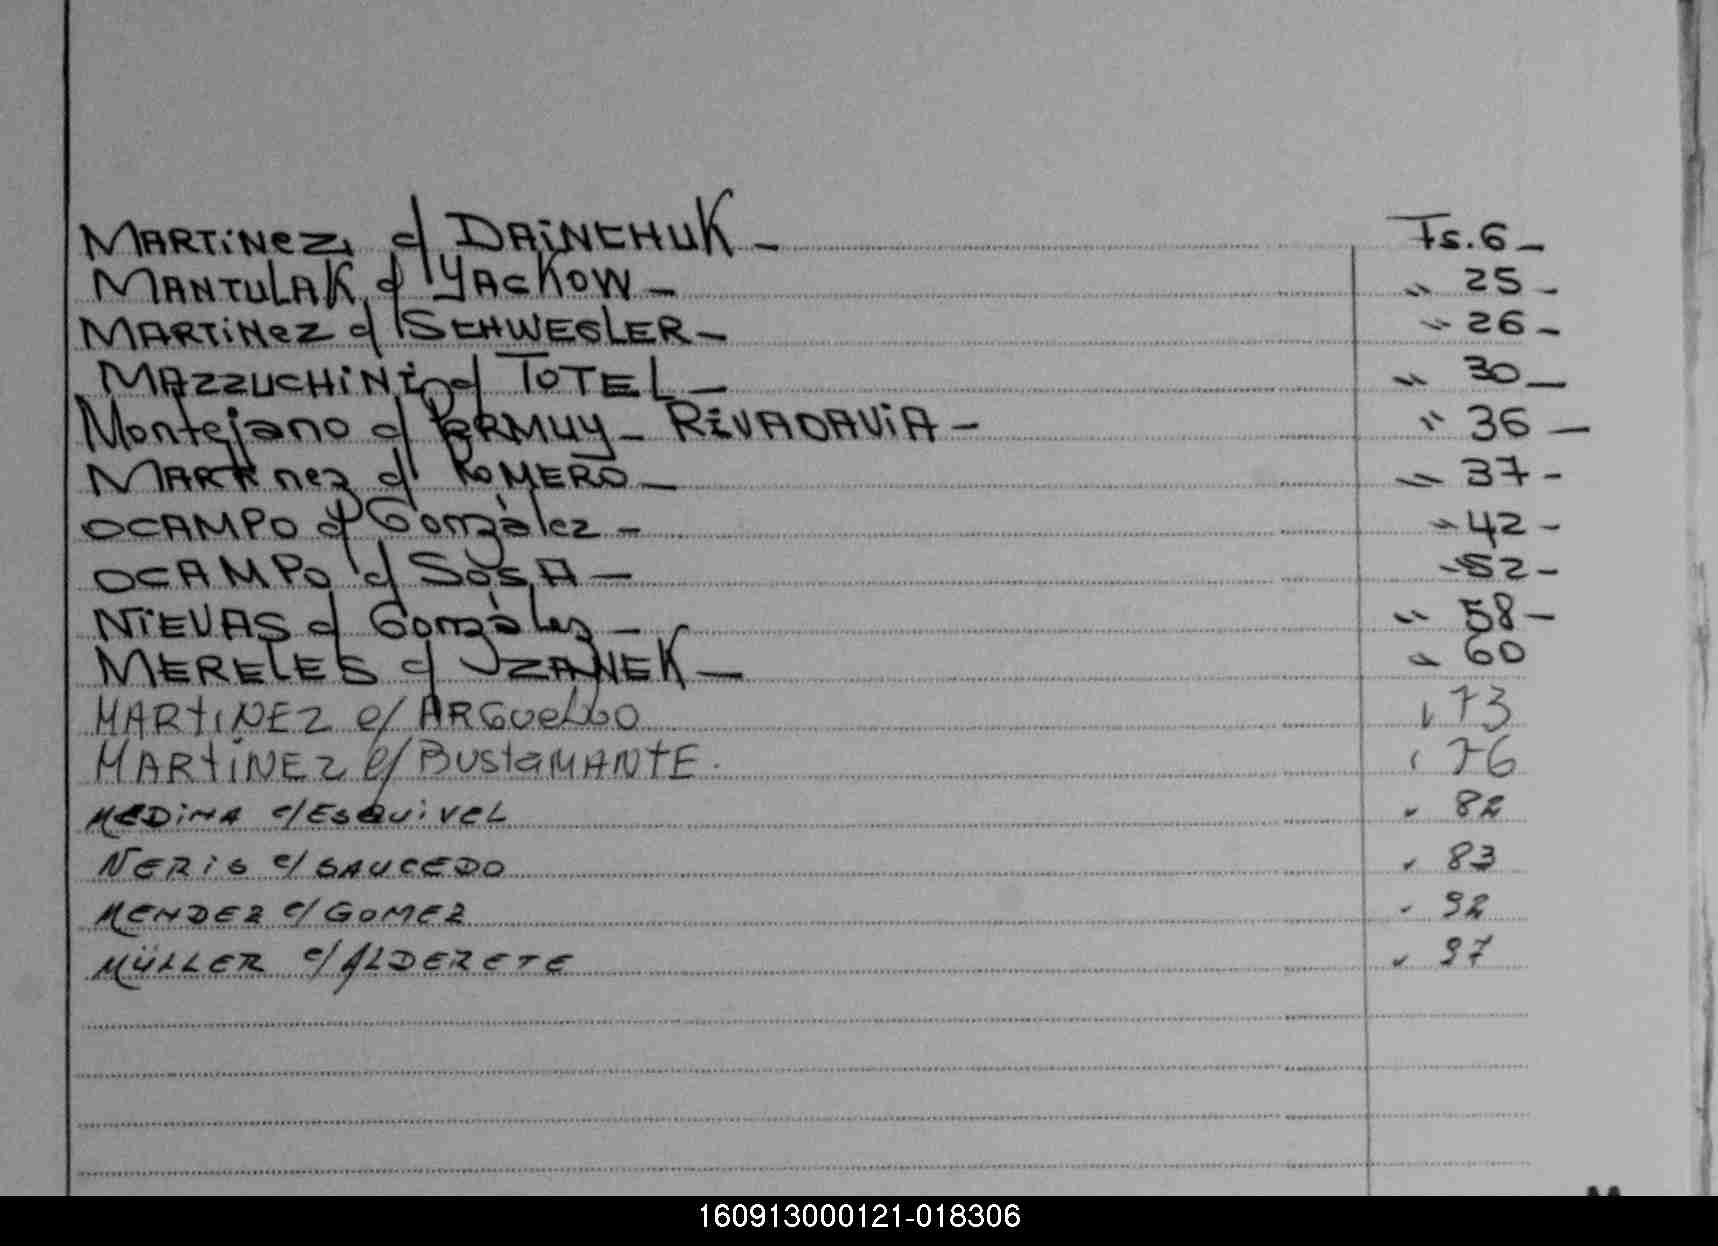 MARTiNez c/ DAiNCHUK - Fs. 6 -
MANTULAK c/ YACKOW - " 25 -
MARTiNez c/ SCHWESLER - " 26 -
MAZZUCHiNi c/ TOTEL - " 30 -
Montejano c/ PERMUY - RiVADAViA - " 36 -
MARTinez c/ ROMERO - " 37 -
OCAMPO c/ González - " 42 -
OCAMPO c/ SOSA - " 52 -
NiEVAS c/ González - " 58 -
MERELES c/ UZANEK - " 60
MARTINEZ c/ ARGUELLO " 73
MARTiNEZ c/ BUSTAMANTE. " 76
MEDiNA c/ ESQUiVEL " 82
NERiS c/ SAUCEDO " 83
MENDEZ c/ GOMEZ " 92
MÜLLER c/ ALDERETE " 97
160913000121-018306